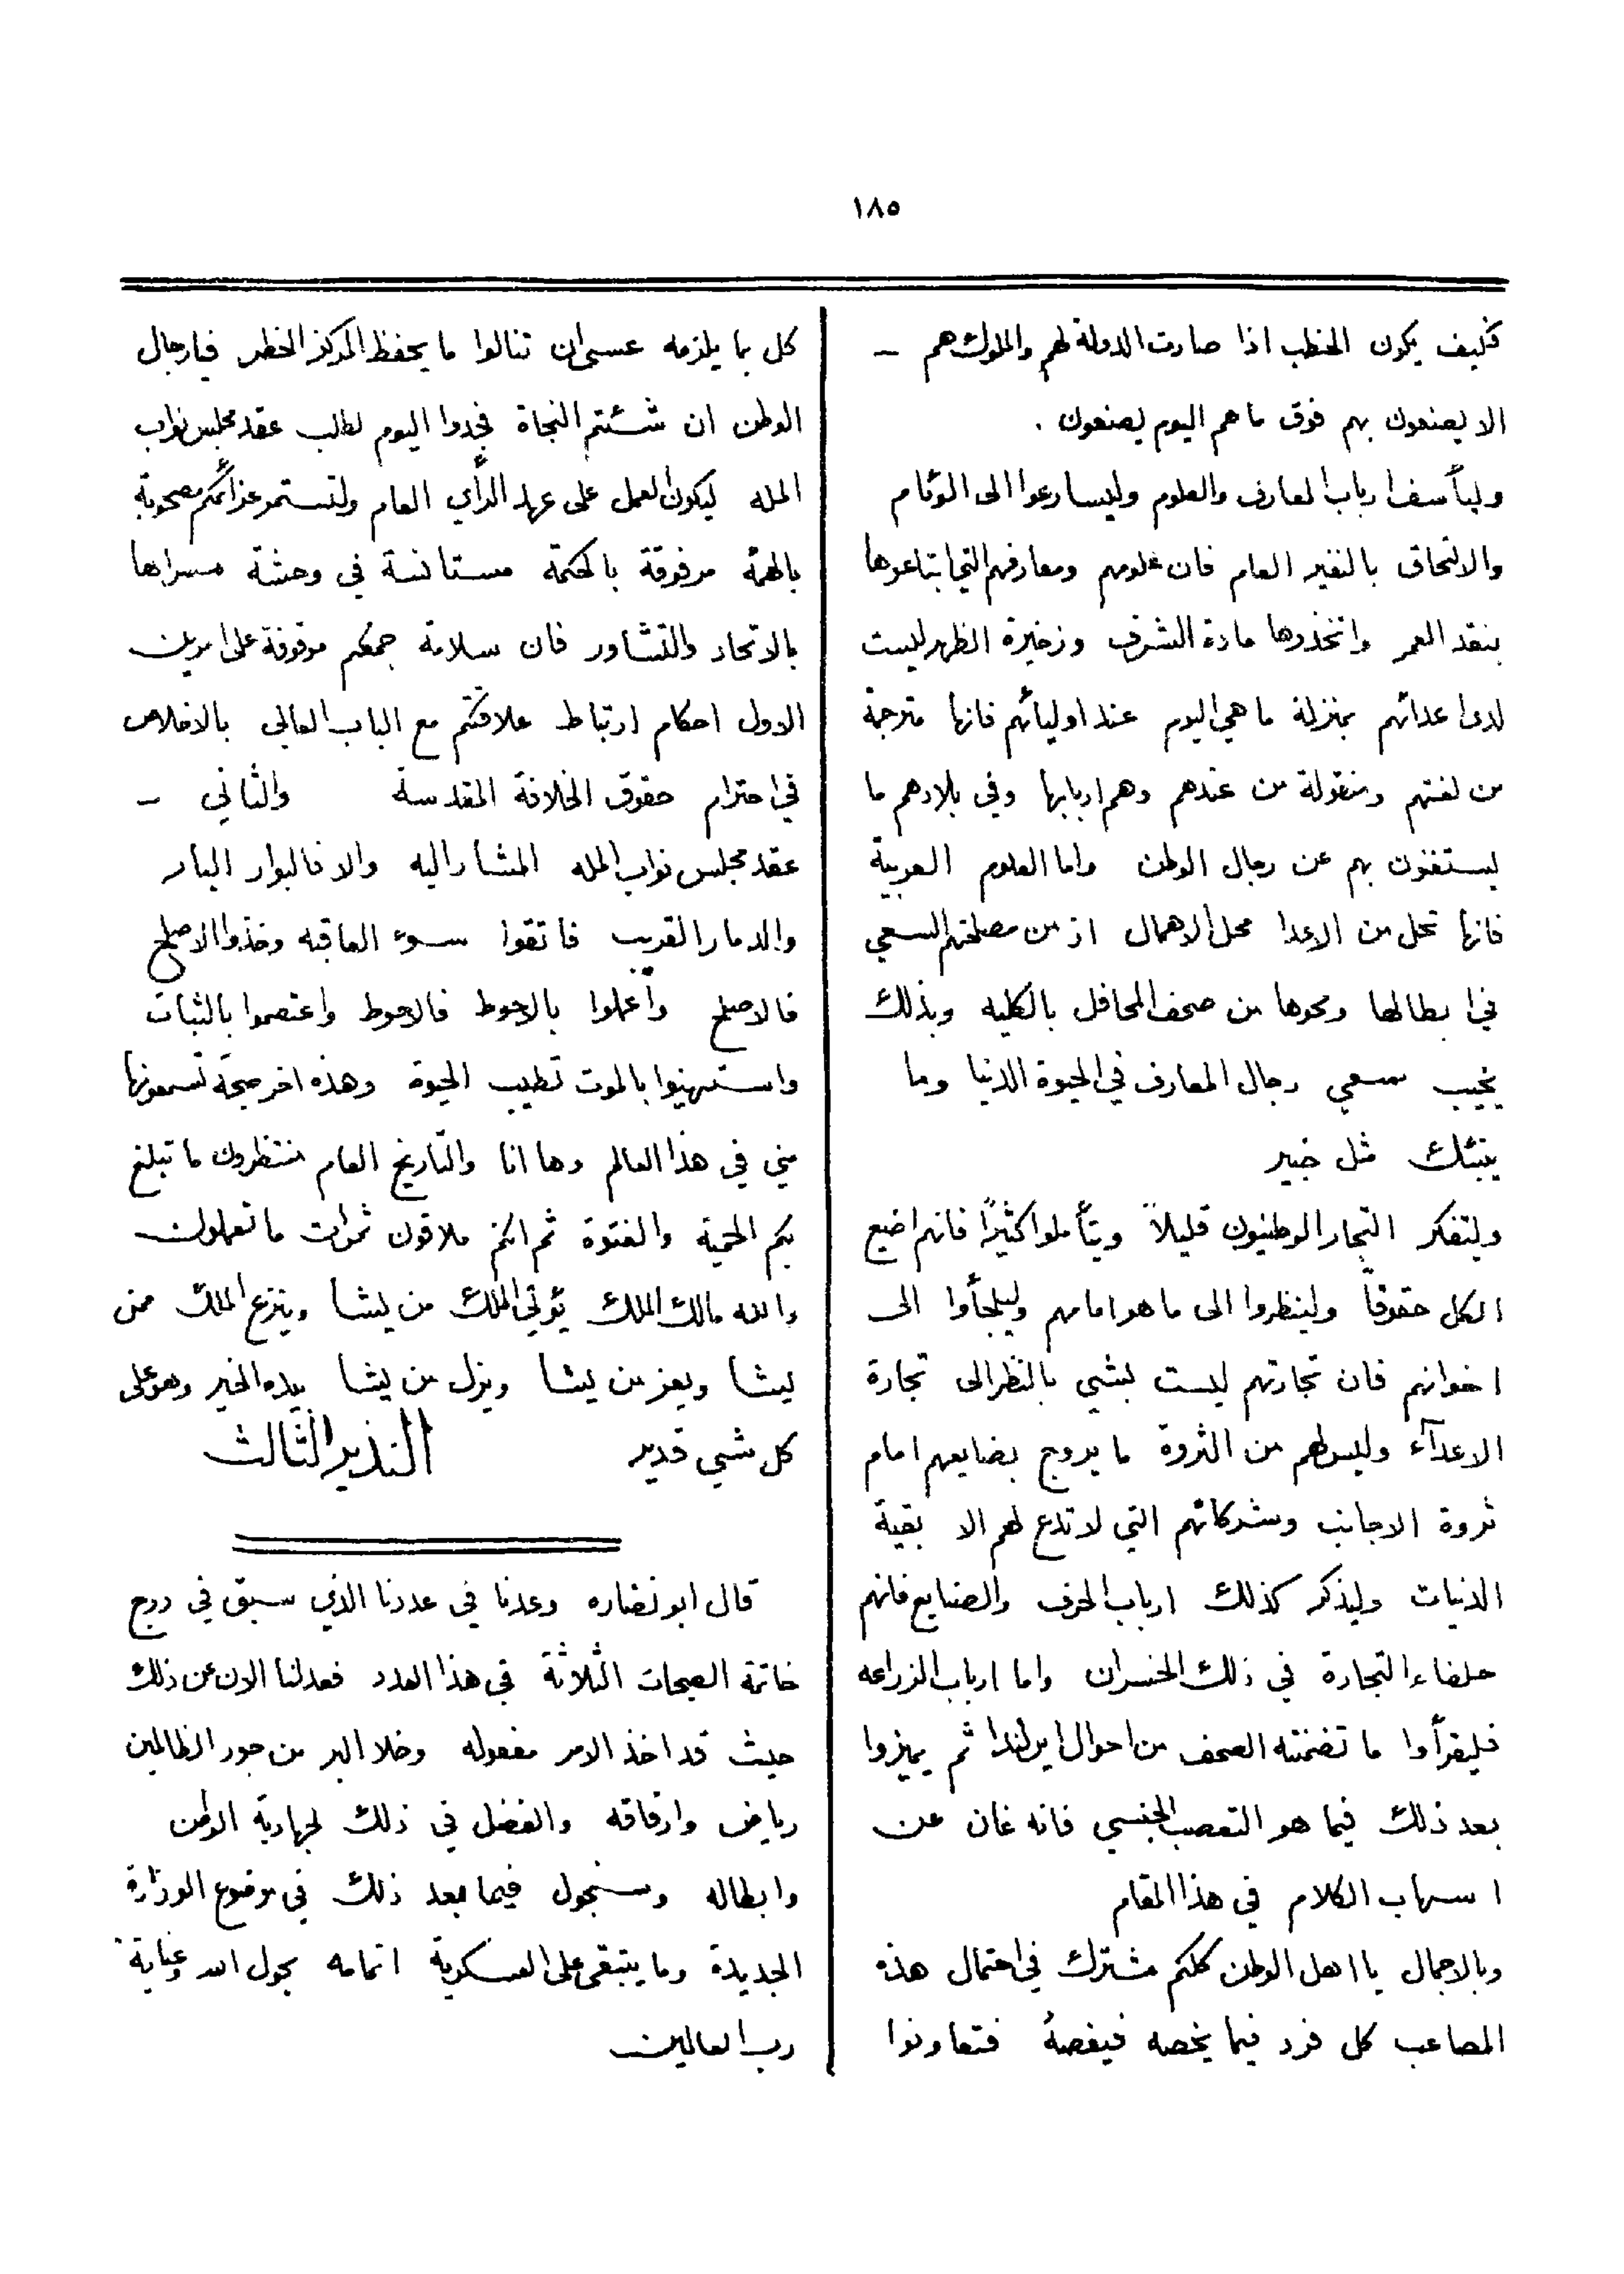 ١٨٥
فكيف يكون الخطب اذا صارت الدولة لهم والملوك هم –
الا يصنعون بهم فوق ما هم اليوم يصنعون .
وليأسف ارباب المعارف والعلوم وليسارعوا الى الوئام
والالتحاق بالنفير العام فان علومهم ومعارفهم التي ابتاعوها
بنقد العمر واتخذوها مادة الشرف وذخيرة الظهر ليست
لدى اعدائهم بمنزلة ما هي اليوم عند اوليائهم فانها مترجمة
من لغتهم ومنقولة من عندهم وهم اربابها وفي بلادهم ما
يستغنون بهم عن رجال الوطن واما العلوم العربية
فانها تحل من الاعدا محل الاهمال اذ من مصلحتهم السعي
في ابطالها ومحوها من صحف المحافل بالكليه وبذلك
يخيب سعي رجال المعارف في الحيوة الدنيا وما
ينبئك مثل خبير
وليتفكر التجار الوطنيون قليلاً ويتأملوا كثيرًا فانهم اضيع
الكل حقوقاً ولينظروا الى ما هو امامهم وليلجأوا الى
اخوانهم فان تجارتهم ليست بشي بالنظر الى تجارة
الاعدآء وليس لهم من الثروة ما يروج بضايعهم امام
ثروة الاجانب وشركاتهم التي لا تدع لهم الا بقية
الدنيات وليذكر كذلك ارباب الحرف والصنايع فانهم
حلفاء التجارة في ذلك الخسران واما ارباب الزراعه
فليقرأوا ما تضمنته الصحف من احوال ايرلندا ثم يميزوا
بعد ذلك فيما هو التعصب الجنسي فانه غان عن
اسهاب الكلام في هذا المقام
وبالاجمال يا اهل الوطن كلكم مشترك في احتمال هذه
المصاعب كل فرد فيما يخصه فيغصهُ فتعاونوا
كل بما يلزمه عسى ان تنالوا ما يحفظ المركز الخطر فيا رجال
الوطن ان شئتم النجاة فجدوا اليوم لطلب عقد مجلس نواب
المله ليكون العمل على عهد الرأي العام ولتستمر عزائمكم مصحوبة
بالهمة مرفوقة بالحكمة مستانسة في وحشة مسراها
بالاتحاد والتشاور فان سلامة جمعكم موقوفة على امرين
الاول احكام ارتباط علاقتكم مع الباب العالي بالاخلاص
في احترام حقوق الخلافة المقدسة والثاني –
عقد مجلس نواب المله المشار اليه والا فالبوار البار
والدمار القريب فاتقوا سوء العاقبه وخذوا الاصلح
فالاصلح واعملوا بالاحوط فالاحوط واعتصموا بالثبات
واستهنيوا بالموت تطيب الحيوة وهذه اخر صيحة تسمعونها
مني في هذا العالم وها انا والتاريخ العام منتظرون ما تبلغ
بكم الحمية والفتوة ثم انكم ملاقون ثمرات ما تعملون
والله مالك الملك يؤتي الملك من يشا وينزع الملك ممن
يشا ويعز من يشا ويذل من يشا بيده الخير وهو على
كل شي قدير النذير الثالث
قال ابو نضاره وعدنا في عددنا الذي سبق في درج
خاتمة الصيحات الثلاثة في هذا العدد فعدلنا الان عن ذلك
حيث قد اخذ الامر مفعوله وخلا البر من جور الظالمين
رياض وارفاقه والفضل في ذلك لجهادية الوطن
وابطاله وسنجول فيما بعد ذلك في موضوع الوزارة
الجديدة وما يتبقى على العسكرية اتمامه بحول الله وعناية
رب العالمين